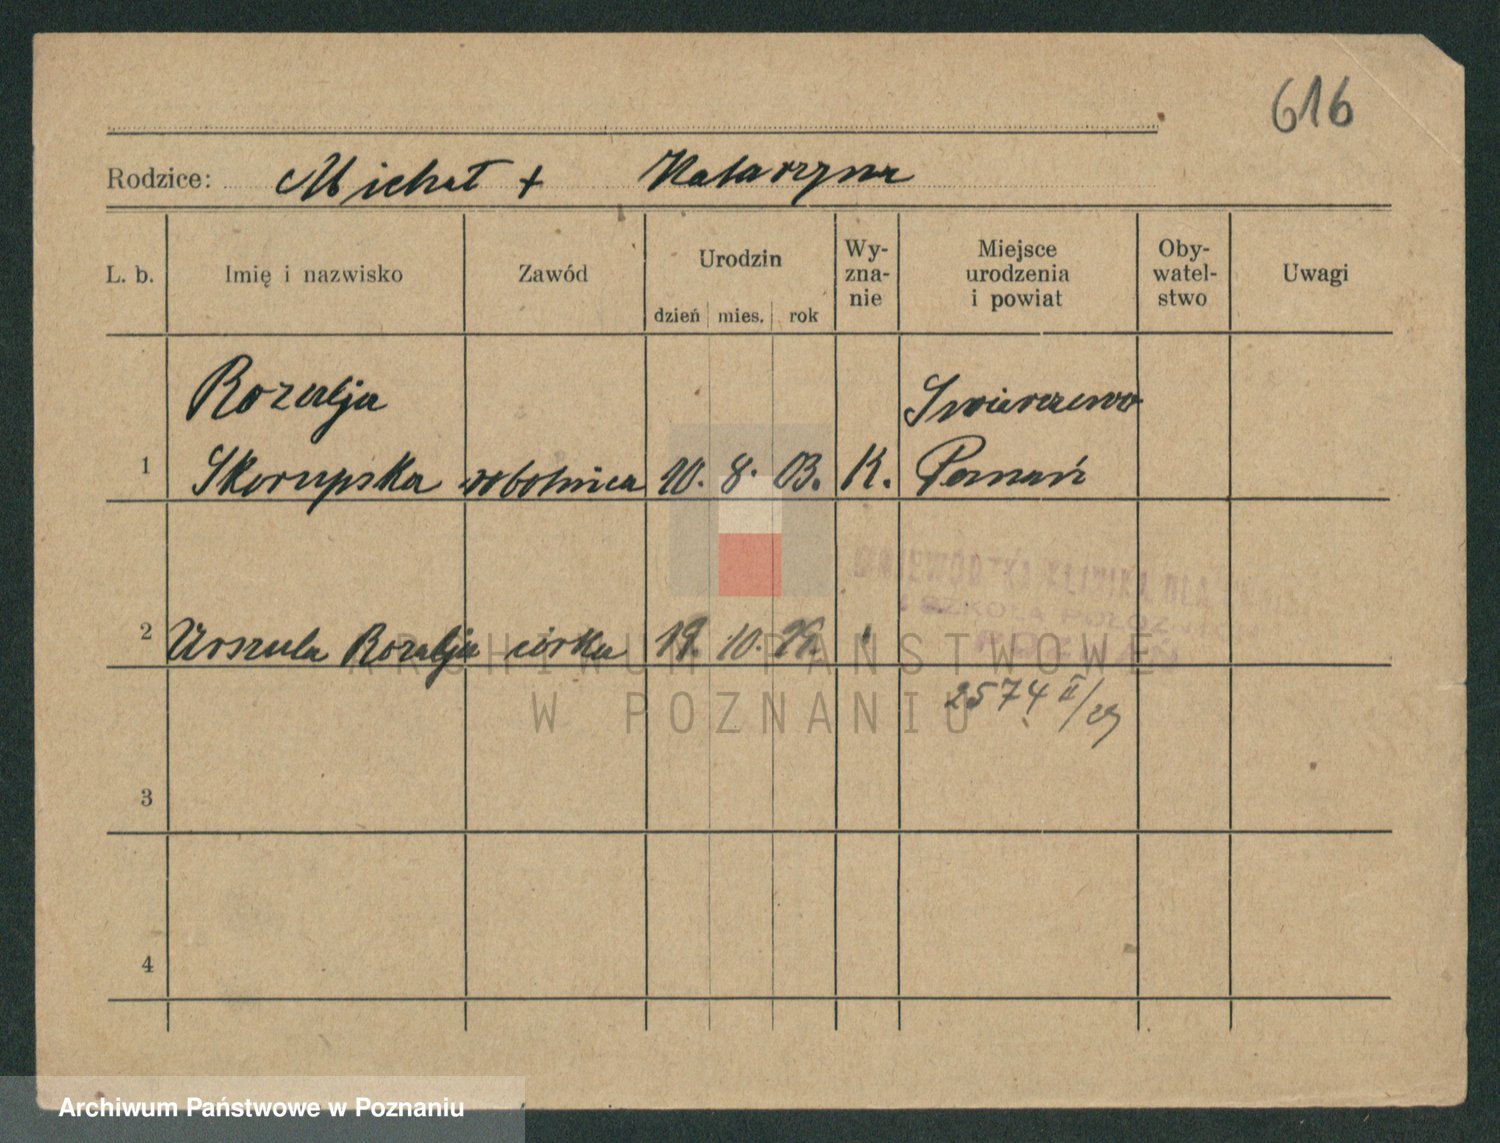 616
Rodzice: Michał + Katarzyna
L. b. Imię i nazwisko Zawód Urodzin dzień mies. rok Wy-zna-nie Miejsce urodzenia i powiat Oby-watel-stwo Uwagi
Rozalja Swierczewo
1 Skorupska robotnica 10. 8. 03. K. Poznań
WOJEWÓDZKA KLINIKA DLA
SZKOŁA POŁOŻNYCH
POZNAŃ
2 Urszula Rozalja córka 19. 10. 29.
ARCHIWUM PAŃSTWOWE
W POZNANIU
2574 II/29
3
4
Archiwum Państwowe w Poznaniu